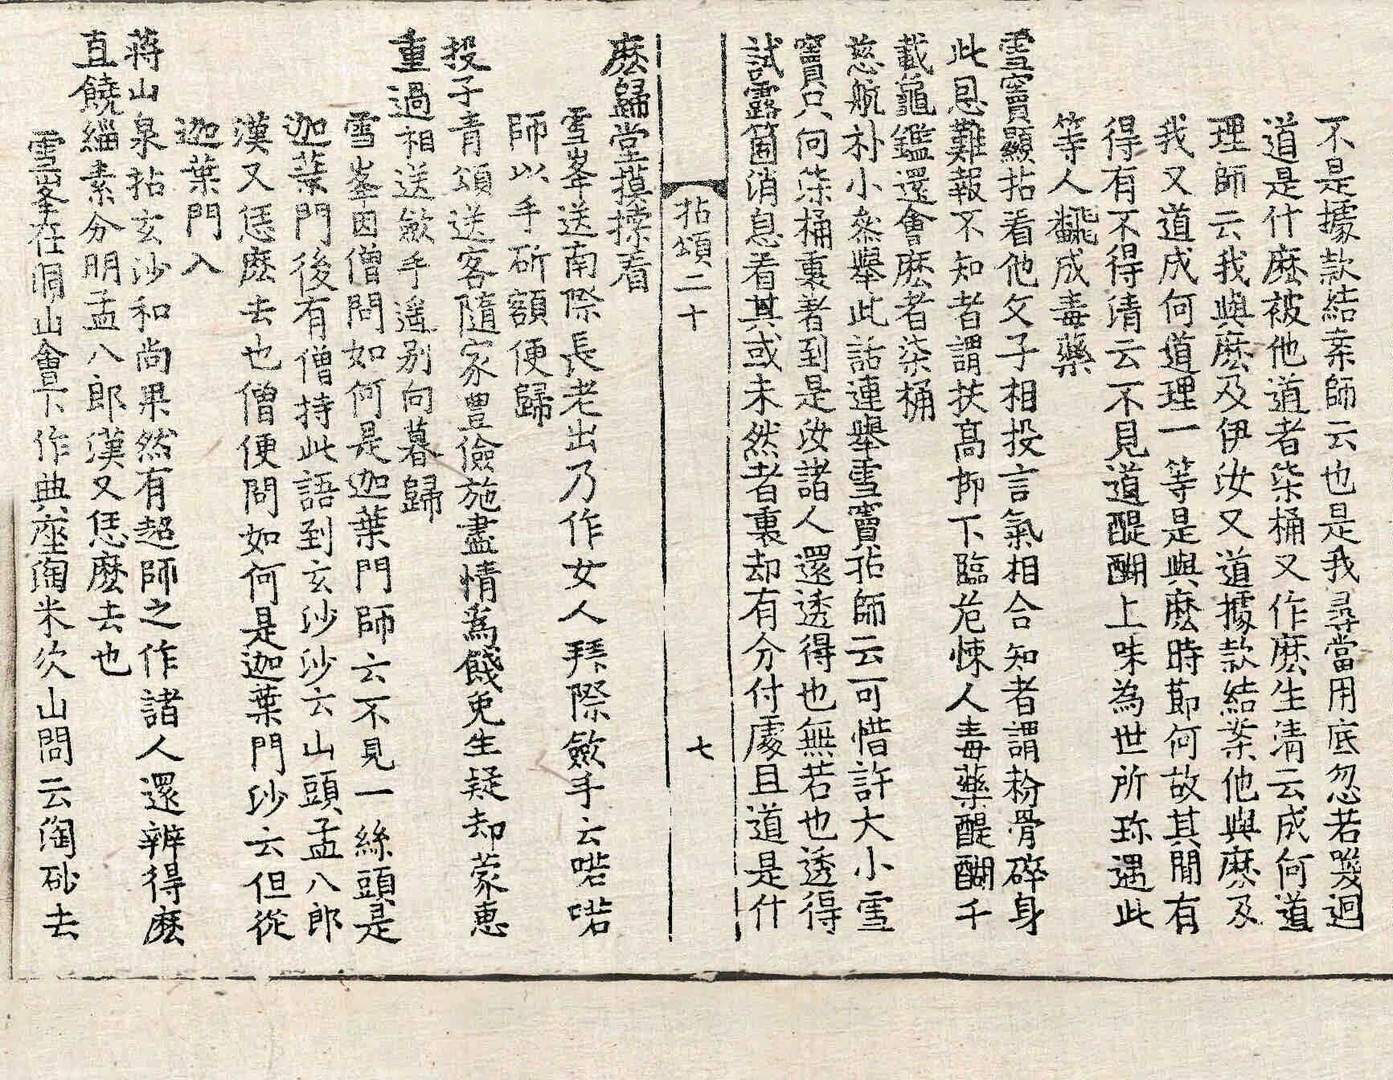 不是據款結案師云也是我尋當用底忽若㘞迴
道是什麽被他道者柒桶又作麽生清云成何道
理師云我與麽及伊汝又道據款結案他與麽及
我又道成何道理一等是與麽時節何故其間有
得有不得清云不見道醍醐上味為世所珍遇此
等人飜成毒藥
雪竇顯拈看他父子相投言氣相合知者謂粉骨碎身
此恩難報不知者謂扶高抑下臨危悚人毒藥醍醐千
載龜鑑還會麽者柒桶
慈航朴小叅舉此話連舉雪竇拈師云可惜許大小雪
竇只向柒桶裏著到是汝諸人還透得也無若也透得
試露箇消息看其或未然者裏却有分付處且道是什
拈頌二十
七
麽歸堂摸㨿看
雪峯送南際長老出乃作女人拜際斂手云喏喏
師以手斫額便歸
投子青頌送客隨家豊儉施盡情為餞免生疑却蒙惠
重過相送斂手遥別向暮歸
雪峯因僧問如何是迦葉門師云不見一絲頭是
迦葉門後有僧持此語到玄沙沙云山頭孟八郎
漢又恁麽去也僧便問如何是迦葉門沙云但從
迦葉門入
蒋山泉拈玄沙和尚果然有超師之作諸人還辨得麽
直饒緇素分明孟八郎漢又恁麽去也
雪峯在洞山會下作典座淘米次山問云淘砂去